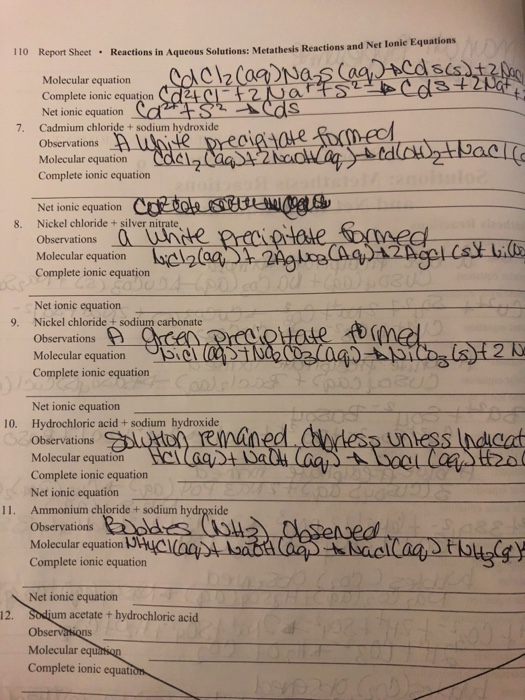 110 Report Sheet • Reactions in Aqueous Solutions: Metathesis Reactions and Net Ionic Equations
Molecular equation CdCl2(aq) Na2S(aq) → CdS(s) + 2Na
Complete ionic equation Cd2+Cl- + 2Na+ + S2- → CdS + 2Na+
Net ionic equation Cd2+ + S2- → CdS
7. Cadmium chloride + sodium hydroxide
Observations A white precipitate formed
Molecular equation CdCl2(aq) + 2NaOH(aq) → Cd(OH)2 + NaCl
Complete ionic equation
Net ionic equation
8. Nickel chloride + silver nitrate
Observations a white precipitate formed
Molecular equation NiCl2(aq) + 2AgNO3(Aq) → 2AgCl(s) +
Complete ionic equation
Net ionic equation
9. Nickel chloride + sodium carbonate
Observations A green precipitate formed
Molecular equation NiCl(aq) + Na2CO3(aq) → NiCO3(s) + 2N
Complete ionic equation
Net ionic equation
10. Hydrochloric acid + sodium hydroxide
Observations Solution remained colorless unless Indicat
Molecular equation HCl(aq) + NaOH(aq) → NaCl(aq) H2O
Complete ionic equation
Net ionic equation
11. Ammonium chloride + sodium hydroxide
Observations Bubbles (NH3) Observed
Molecular equation NH4Cl(aq) + NaOH(aq) → NaCl(aq) + NH3(g)
Complete ionic equation
Net ionic equation
12. Sodium acetate + hydrochloric acid
Observations
Molecular equation
Complete ionic equation